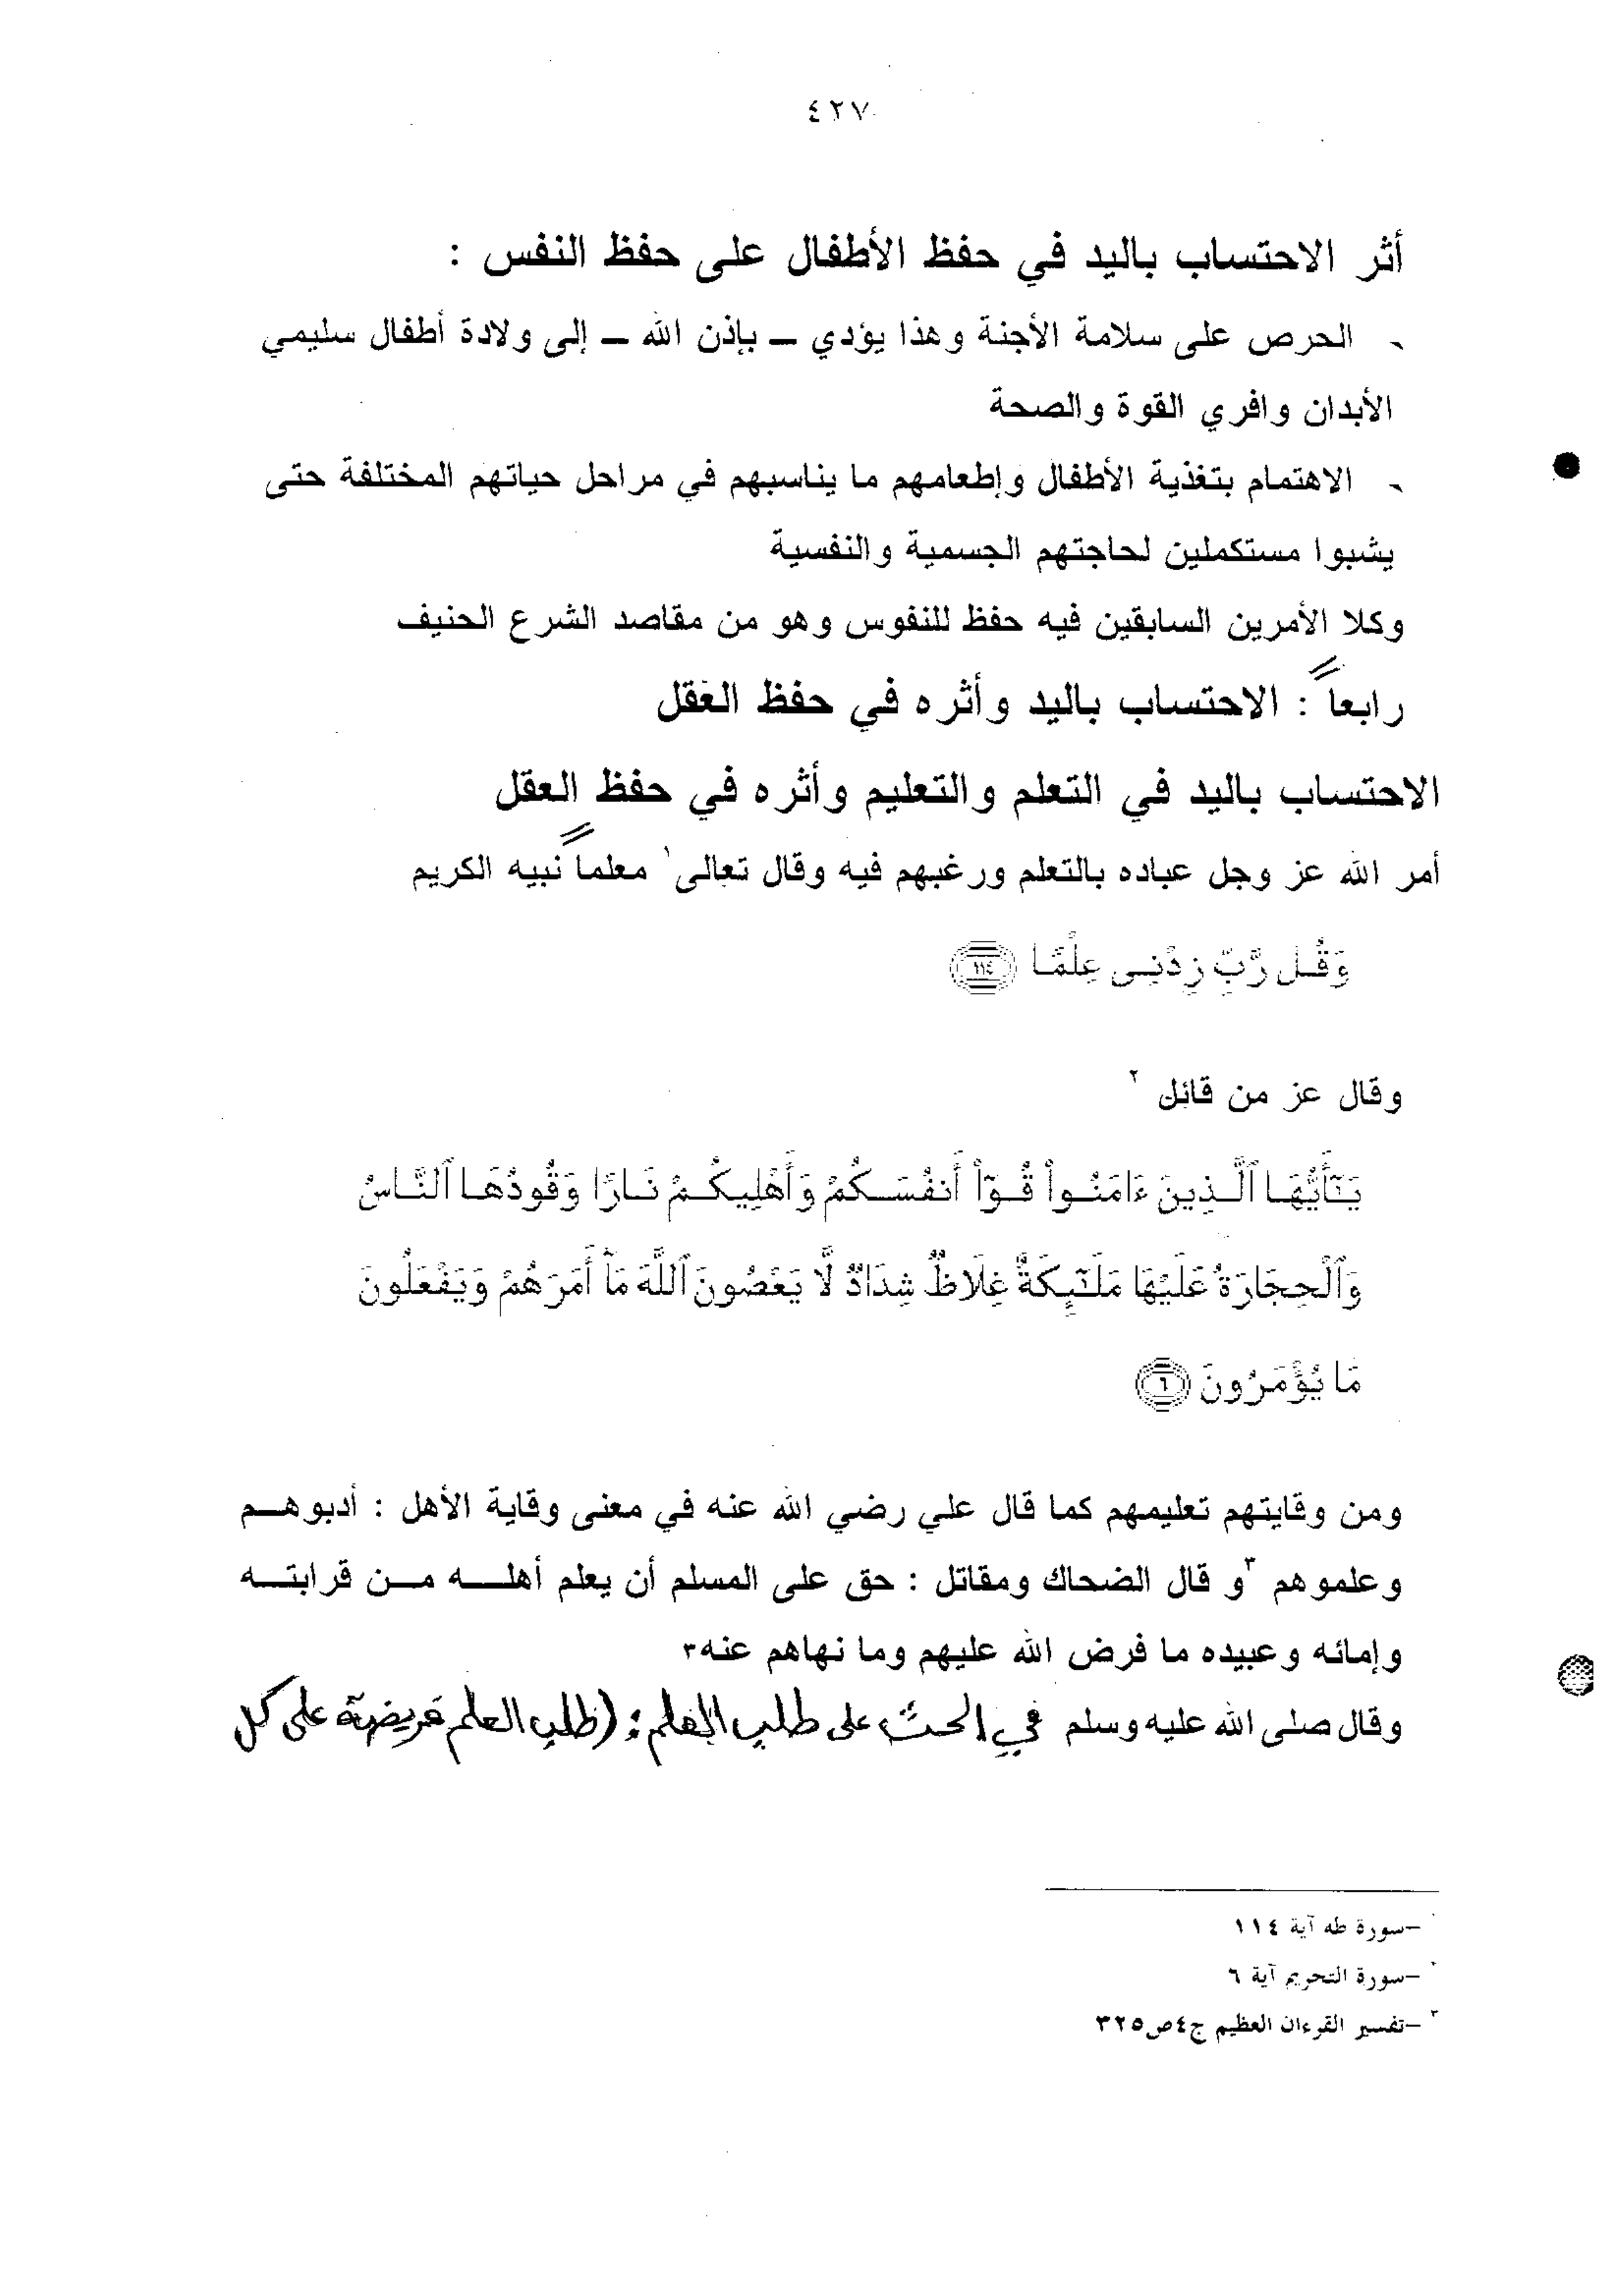 ٤٢٧
أثر الاحتساب باليد في حفظ الأطفال على حفظ النفس :
- الحرص على سلامة الأجنة وهذا يؤدي – بإذن الله – إلى ولادة أطفال سليمي
الأبدان وافري القوة والصحة
- الاهتمام بتغذية الأطفال وإطعامهم ما يناسبهم في مراحل حياتهم المختلفة حتى
يشبوا مستكملين لحاجتهم الجسمية والنفسية
وكلا الأمرين السابقين فيه حفظ للنفوس وهو من مقاصد الشرع الحنيف
رابعاً : الاحتساب باليد وأثره في حفظ العقل
الاحتساب باليد في التعلم والتعليم وأثره في حفظ العقل
أمر الله عز وجل عباده بالتعلم ورغبهم فيه وقال تعالى١ معلماً نبيه الكريم
وَقُل رَّبِّ زِدْنِى عِلْمًا ١١٤
وقال عز من قائل ٢
يَـٰٓأَيُّهَا ٱلَّذِينَ ءَامَنُوا۟ قُوٓا۟ أَنفُسَكُمْ وَأَهْلِيكُمْ نَارًا وَقُودُهَا ٱلنَّاسُ
وَٱلْحِجَارَةُ عَلَيْهَا مَلَـٰٓئِكَةٌ غِلَاظٌ شِدَادٌ لَّا يَعْصُونَ ٱللَّهَ مَآ أَمَرَهُمْ وَيَفْعَلُونَ
مَا يُؤْمَرُونَ ٦
ومن وقايتهم تعليمهم كما قال علي رضي الله عنه في معنى وقاية الأهل : أدبوهـم
وعلموهم ٣و قال الضحاك ومقاتل : حق على المسلم أن يعلم أهلـــه مــن قرابتــه
وإمائه وعبيده ما فرض الله عليهم وما نهاهم عنه٣
وقال صلى الله عليه وسلم في الحث على طلب العلم : (طلب العلم فريضة على كل
١ –سورة طه آية ١١٤
٢ –سورة التحريم آية ٦
٣ –تفسير القرءان العظيم ج٤ص٣٢٥